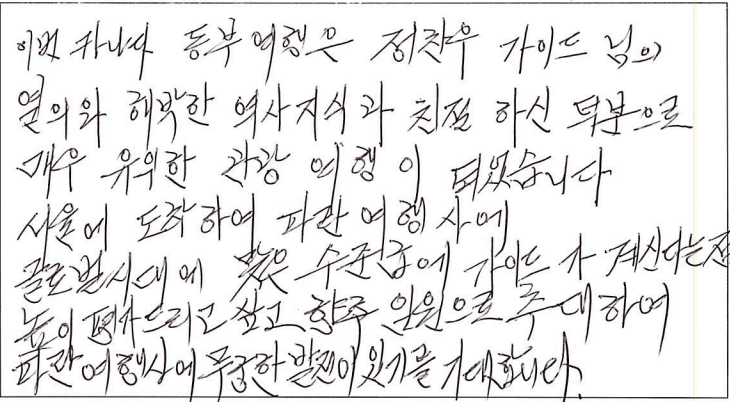 이번 카나다 동부여행은 정찬우 가이드 님의
열의와 해박한 역사지식과 친절 하신 덕분으로
매우 유위한 관광 여행이 되었습니다
서울에 도착하여 파란여행사에
글로벌시대에 맞은 수준급에 가이드가 계신다는점
높이 평가드리고 싶고 향후 임원으로 추대하여
파란여행사에 무궁한 발전이 있기를 기대합니다.